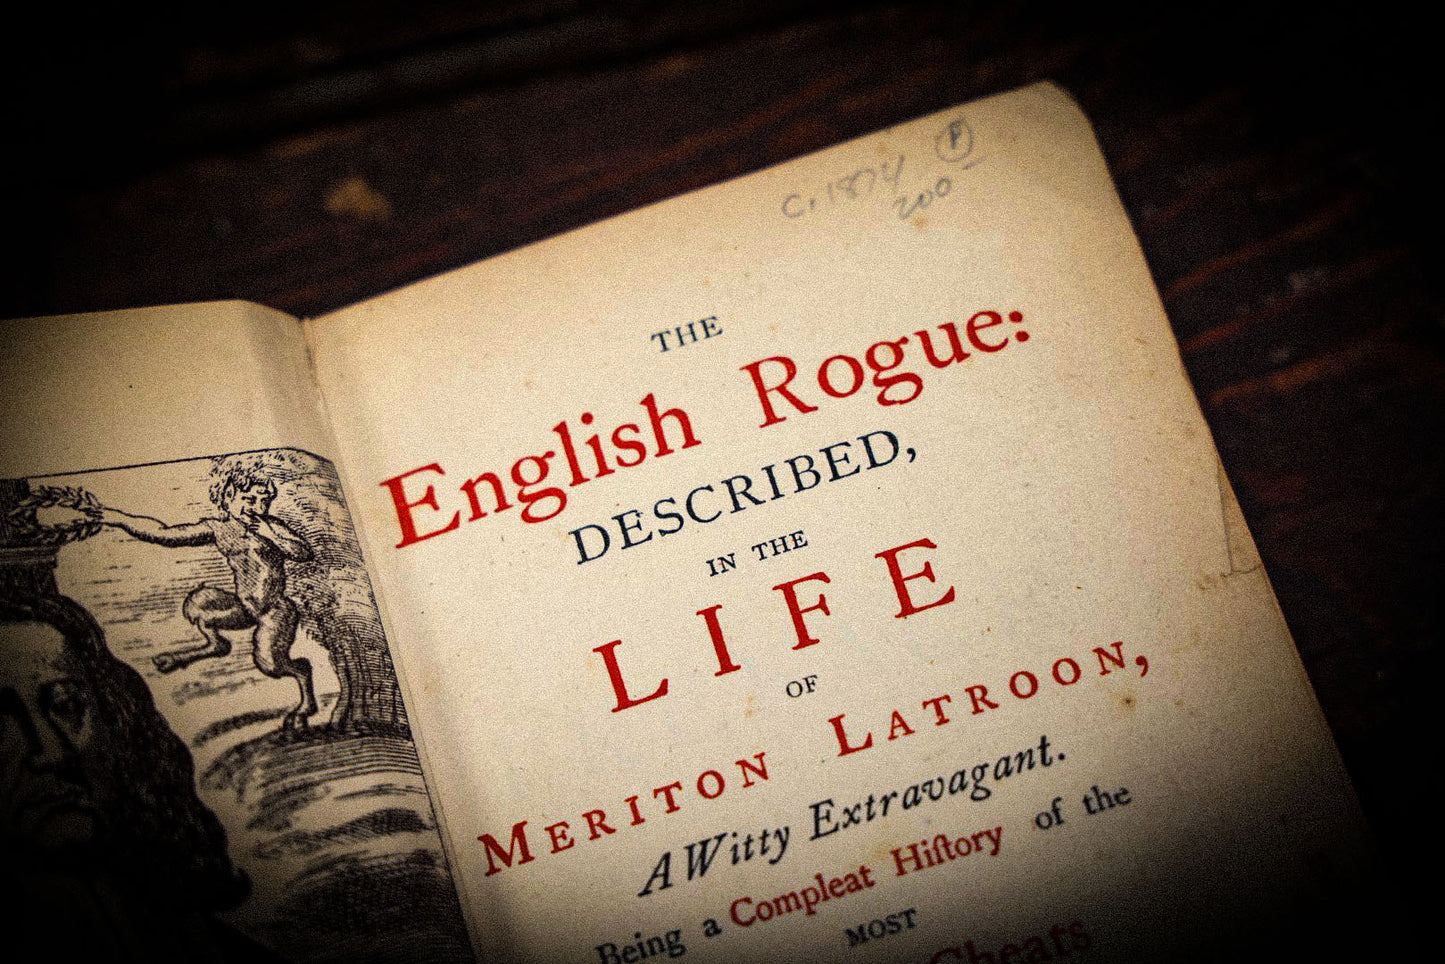 P
c. 1874
200
THE
English Rogue:
DESCRIBED,
IN THE
LIFE
OF
MERITON LATROON,
A Witty Extravagant.
Being a Compleat Hiſtory of the
MOST
Cheats